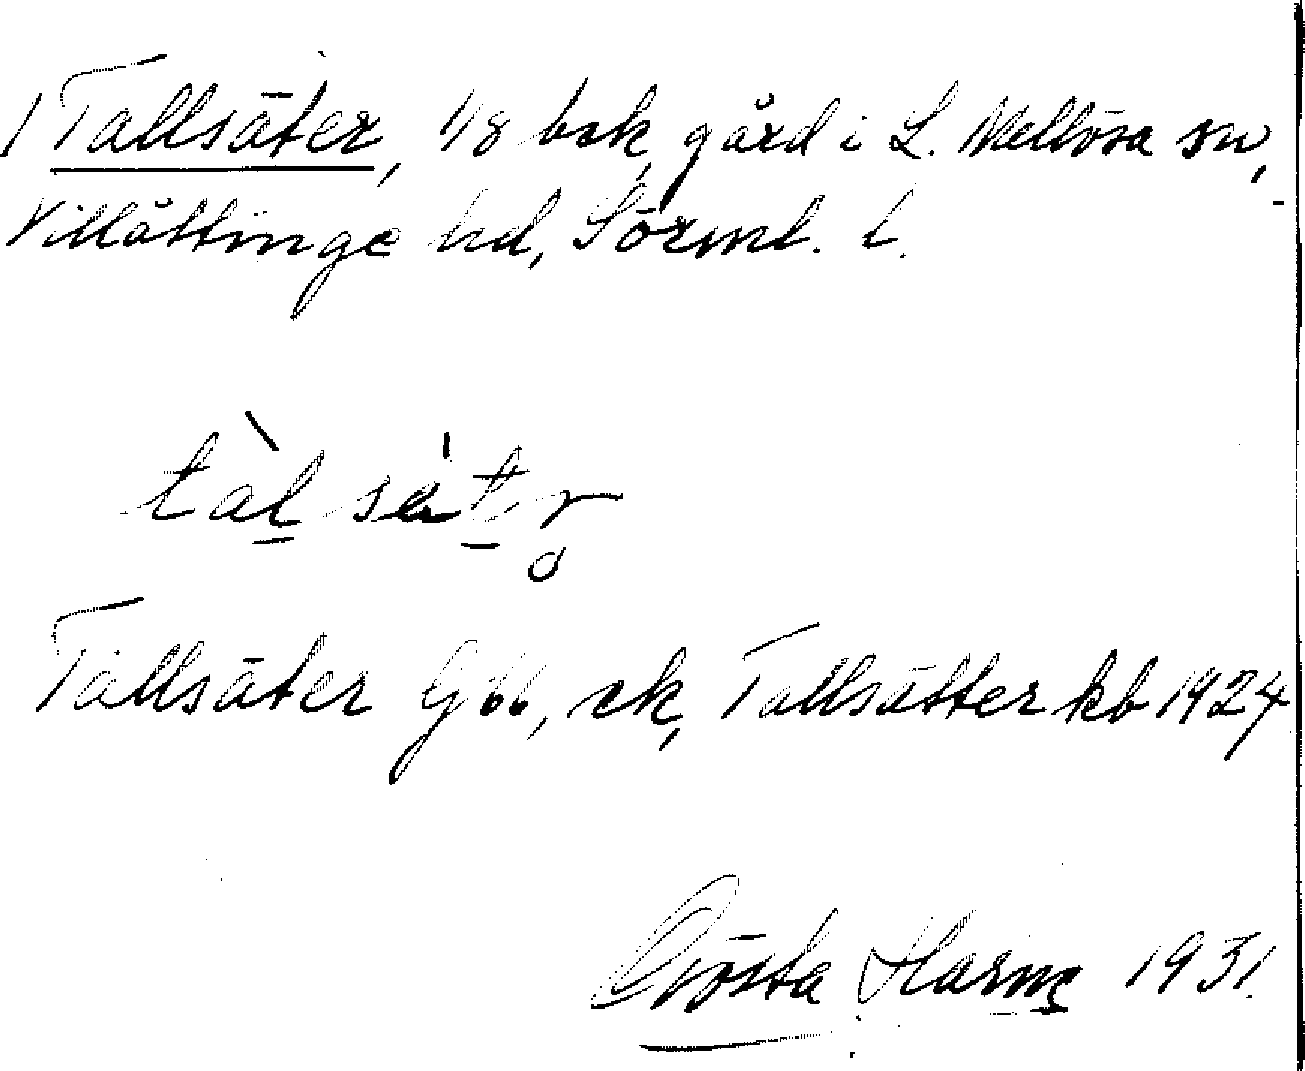 Tallsäter, 1/8 bsk, gård i L. Mellösa sn,
Villåttinge hd, Sörml. l.
tàl sätr̥
Tallsäter Gbb, ek, Tallsätter kb 1924
Gösta Harms 1931.